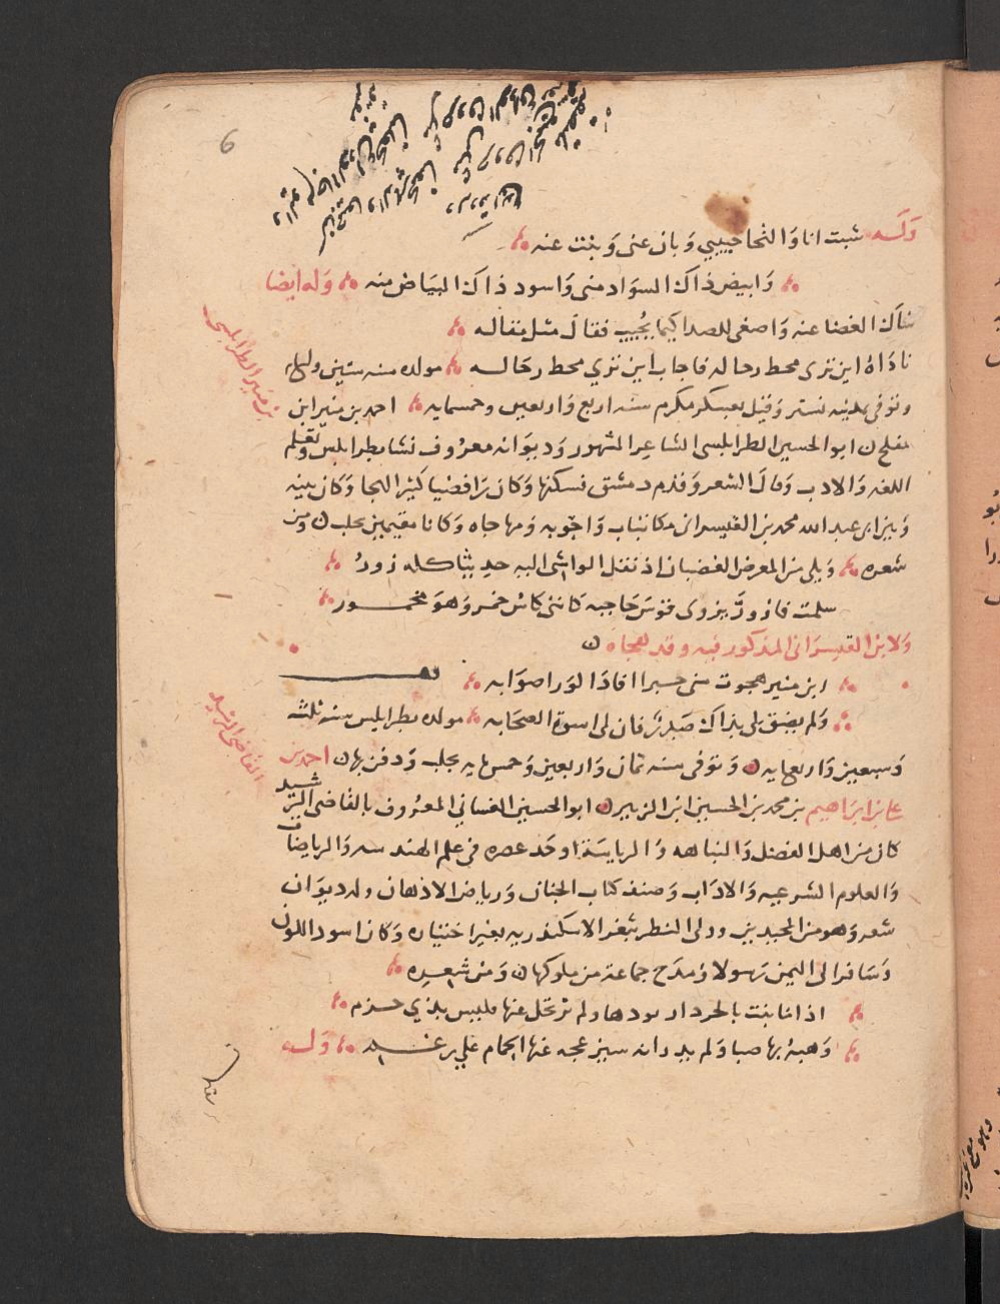 6
وَلَه شبت انا وَالتحا حبيبي وَبان عنى وَبنت عنه
وَابيض ذاك السوَاد منى وَاسود ذاك البيَاض منه وَله ايضا
شاك الغضا عنه وَاصغى للصدا كيما يُجيب فقال مثل مقاله
ناداهُ اين ترى محط رحاله فاجاب اين تري محط رحاله مولده سنه ستين
وتوفى بمدينه تستر وَقيل بعسكر مكرم سنه اربع وَاربعين وخمسمايه احمد بن منير ابن
مفلح ابو الحسين الطرابلسى الشاعر المشهور وَديوَانه معرُوف نشا بطرابلس وتعلم
اللغه وَالادب وَقال الشعر وَقدم دمشق فسكنها وَكان رَافضيا كثير الهجا وَكان بينه
وَبين ابى عبد الله محمد بن القيسرانى مكاتبات وَاجوبه ومهاجاه وَكانا مقيمين بحلب ومن
شعره وَيلى من المعرض الغضبان اذ نقل الواشى اليه حديثا كله زورُ
سلمت فازورّ يزوى قوسَ حَاجبه كاننى كاس خمر وَهوَ مخمور
وَلابن القيسرَانى المذكور فيه وقد هجاه
ابن منير هجوت منى حبرا افادَا لورا صوَابه
وَلم يضيق بذاك صَدرى فان لى اسوة الصحَابه مولده بطرابلس سنه ثلثه
وَسبعين وَاربعمايه وَتوفى سنه ثمان وَاربعين وَخمسمايه بحلب وَدفن بها احمد بن
على بن ابرَاهيم بن محمد بن الحسين ابن الزبير ابو الحسين الغسانى المعرُوف بالقاضى الرشيد
كان من اهل الفضل وَالنباهه وَالرياسَة اوحَد عصره فى علم الهندسه وَالرياضات
وَالعلوم الشرعيه وَالادَاب وَصنف كتاب الجنان وَرياض الاذهان وله ديوَان
شعر وَهو من المجيدين وولى النظر بثغر الاسكندريه بغير اختياره وَكان اسود اللون
وَسَافر الى اليمن رسولا وَمدَح جماعة من ملوكها وَمن شعره
اذا مانبت بالحر دار يودها ولم يرتحل عنها فليس بذي حزم
وَهبهُ بها صبا وَلم يدر انه سيزعجه عنها الحمام على رغم وَله
بن منير الطرابلسى
القاضى الرشيد